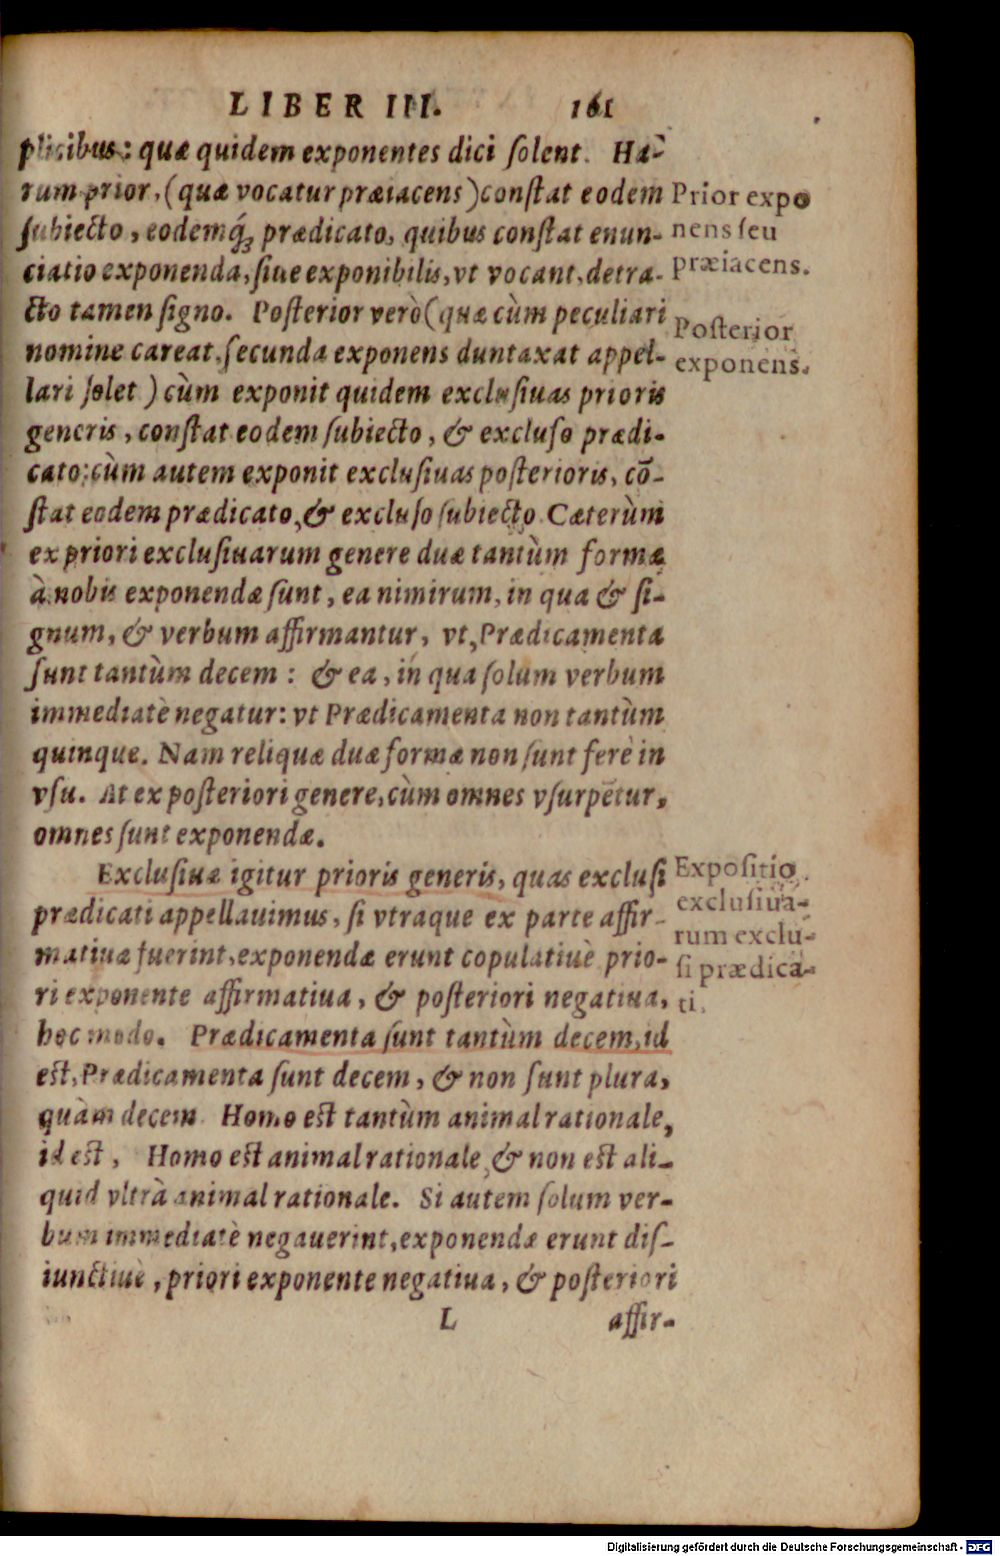 LIBER III. 161
plicibus: quæ quidem exponentes dici ſolent. Ha-
rum prior, (quæ vocatur præiacens) conſtat eodem
ſubiecto, eodemq́; prædicato, quibus conſtat enun-
ciatio exponenda, ſiue exponibilis, vt vocant, detra-
cto tamen ſigno. Poſterior verò (quæ cùm peculiari
nomine careat, ſecunda exponens duntaxat appel-
lari ſolet) cùm exponit quidem excluſiuas prioris
generis, conſtat eodem ſubiecto, & excluſo prædi-
cato: cùm autem exponit excluſiuas poſterioris, cō-
ſtat eodem prædicato, & excluſo ſubiecto. Cæterùm
ex priori excluſiuarum genere duæ tantùm formæ
à nobis exponendæ ſunt, ea nimirum, in qua & ſi-
gnum, & verbum affirmantur, vt, Prædicamenta
ſunt tantùm decem: & ea, in qua ſolum verbum
immediatè negatur: vt Prædicamenta non tantùm
quinque. Nam reliquæ duæ formæ non ſunt ferè in
vſu. At ex poſteriori genere, cùm omnes vſurpētur,
omnes ſunt exponendæ.
Excluſiuæ igitur prioris generis, quas excluſi
prædicati appellauimus, ſi vtraque ex parte affir-
matiuæ fuerint, exponendæ erunt copulatiuè prio-
ri exponente affirmatiua, & poſteriori negatiua,
hoc modo. Prædicamenta ſunt tantùm decem, id
eſt, Prædicamenta ſunt decem, & non ſunt plura,
quàm decem. Homo eſt tantùm animal rationale,
id eſt, Homo eſt animal rationale, & non eſt ali-
quid vltrà animal rationale. Si autem ſolum ver-
bum immediatè negauerint, exponendæ erunt diſ-
iunctiuè, priori exponente negatiua, & poſteriori
L affir-
Prior expo
nens ſeu
præiacens.
Poſterior
exponens.
Expoſitio
excluſiua-
rum exclu-
ſi prædica-
ti.
Digitalisierung gefördert durch die Deutsche Forschungsgemeinschaft - DFG